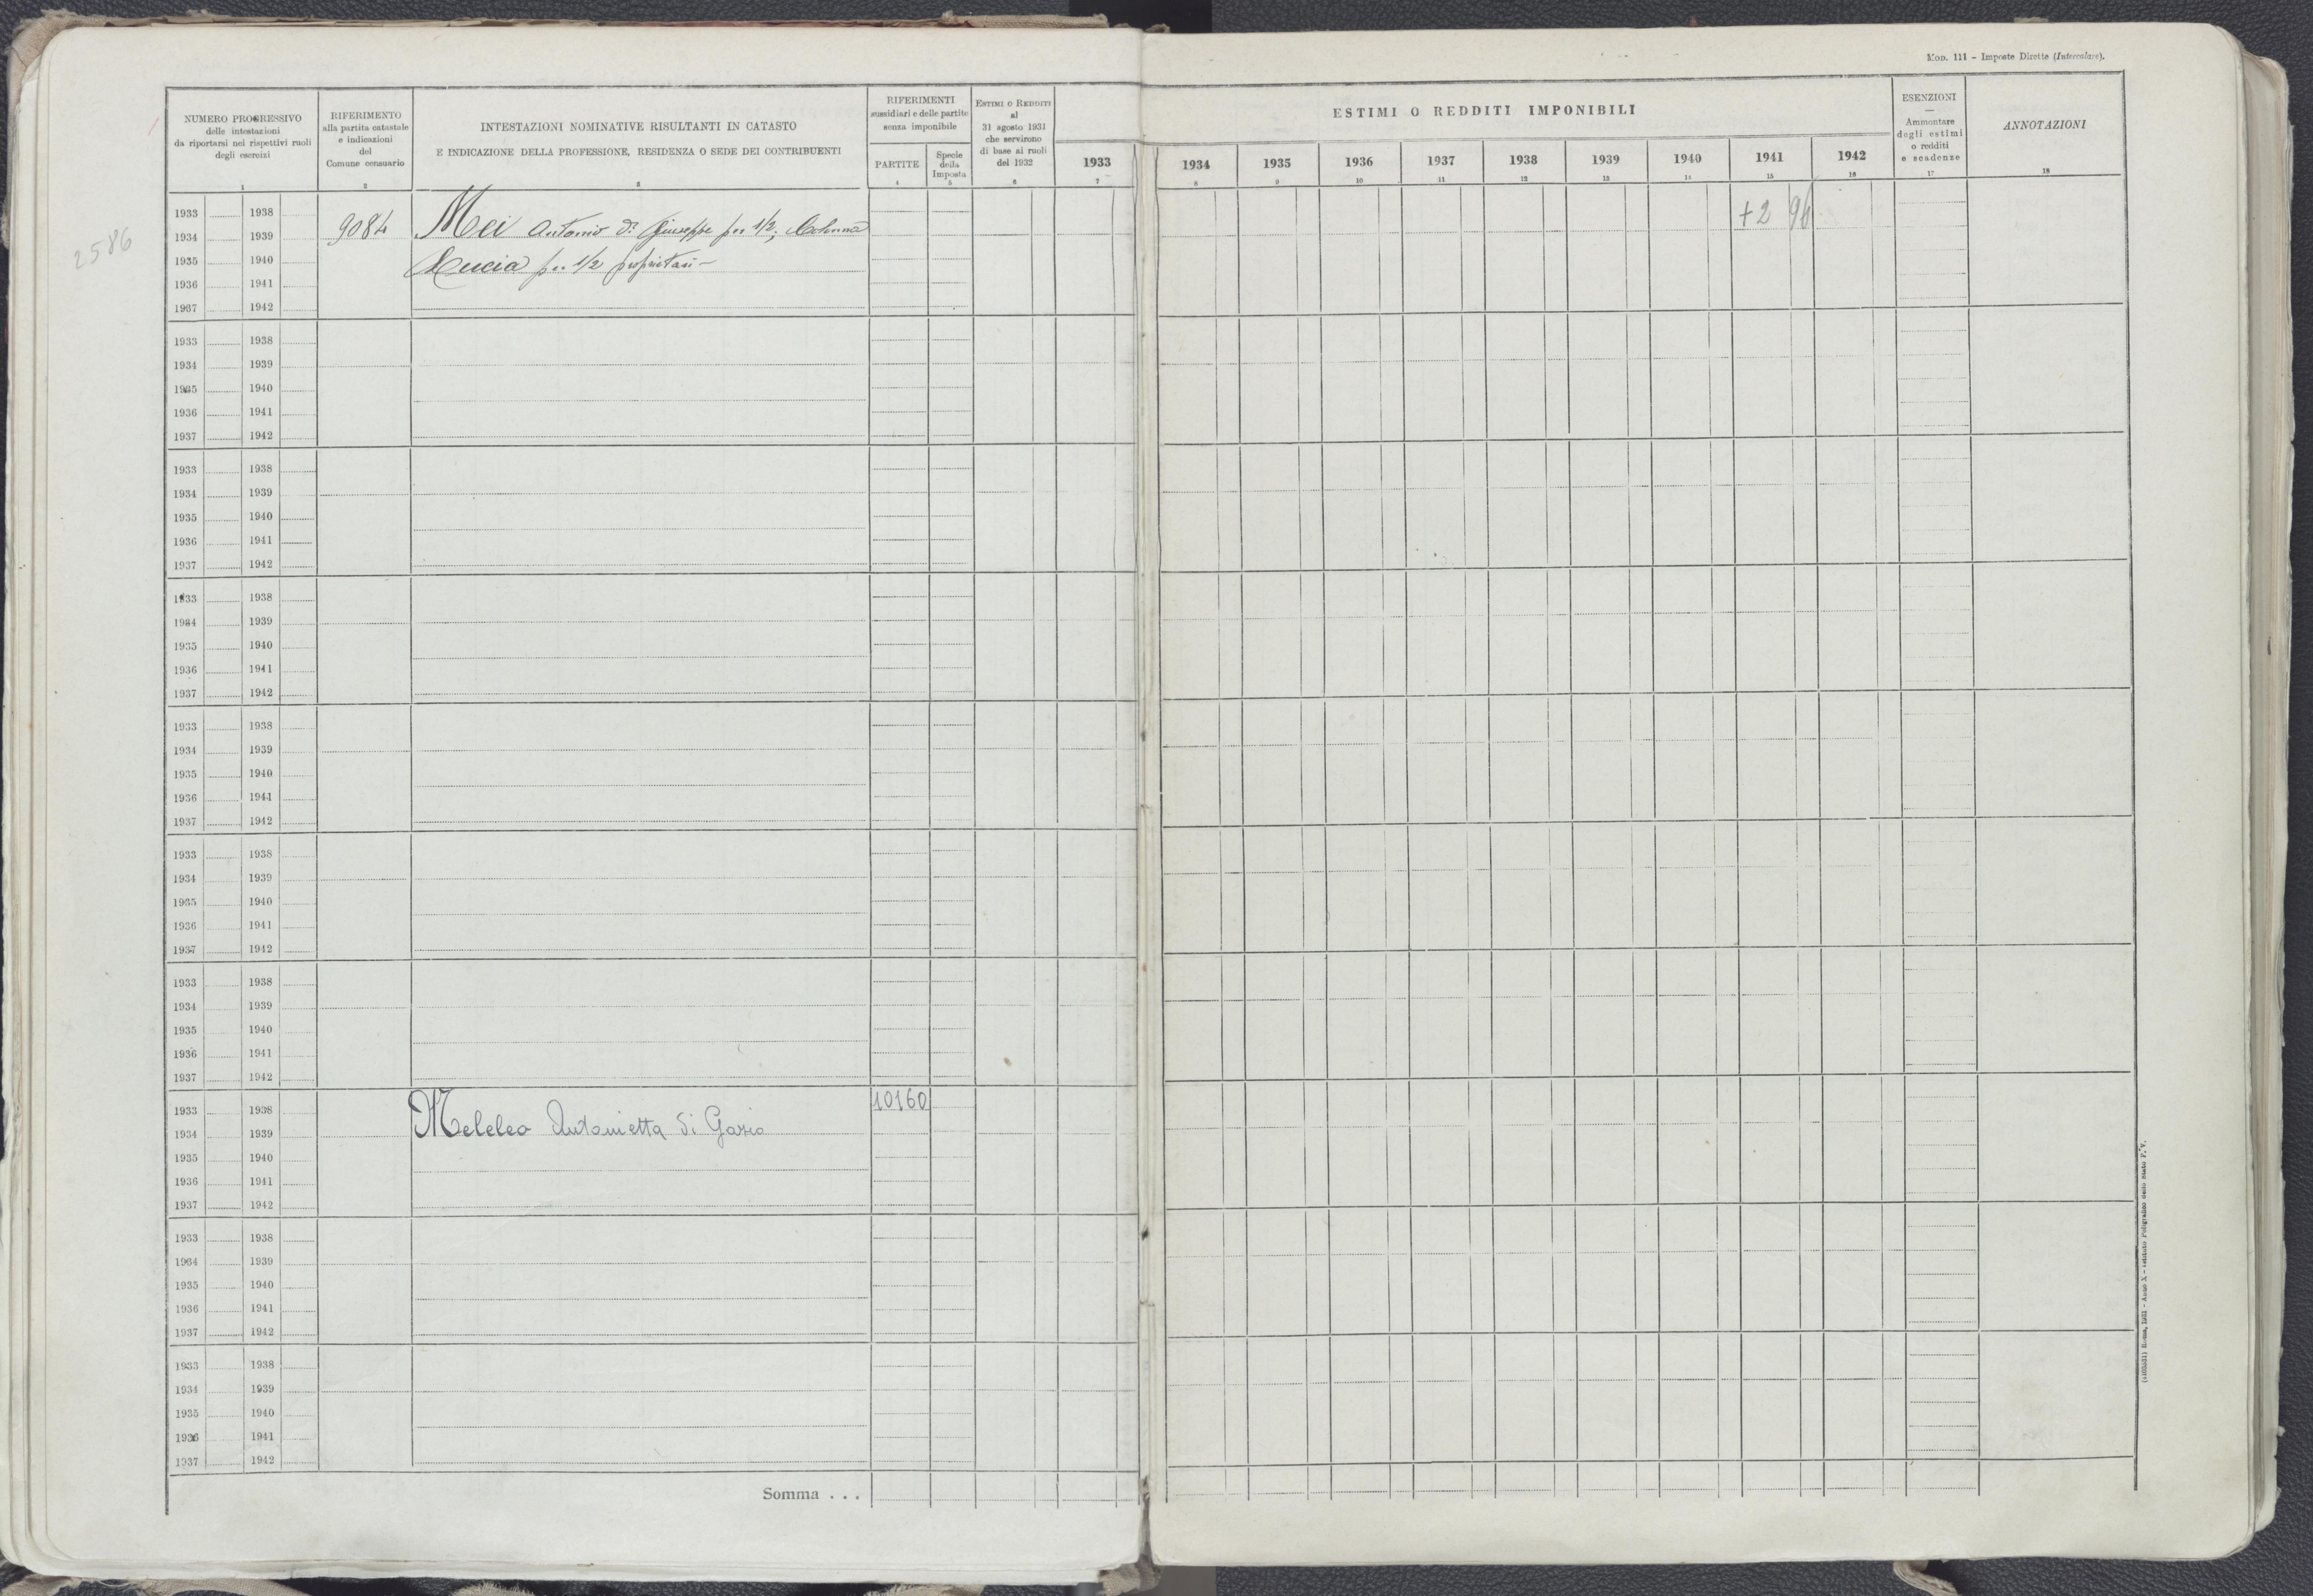 Mod. 111 - Imposte Dirette (Intercalare).
NUMERO PROGRESSIVO
delle intestazioni
da riportarsi nei rispettivi ruoli
degli esercizi
1
RIFERIMENTO
alla partita catastale
e indicazioni
del
Comune censuario
2
INTESTAZIONI NOMINATIVE RISULTANTI IN CATASTO
E INDICAZIONE DELLA PROFESSIONE, RESIDENZA O SEDE DEI CONTRIBUENTI
3
RIFERIMENTI
sussidiari e delle partite
senza imponibile
PARTITE
4
Specie
della
Imposta
5
ESTIMI O REDDITI
al
31 agosto 1931
che servirono
di base ai ruoli
del 1932
6
ESTIMI O REDDITI IMPONIBILI
1933 1934 1935 1936 1937 1938 1939 1940 1941 1942
7 8 9 10 11 12 13 14 15 16
ESENZIONI
—
Ammontare
degli estimi
o redditi
e scadenze
17
ANNOTAZIONI
18
2586
1933 1938
9084 Mei Antonio di Giuseppe per 1/2; Colonna +2 96
1934 1939
Lucia per 1/2 proprietari -
1935 1940
1936 1941
1937 1942
1933 1938
1934 1939
1935 1940
1936 1941
1937 1942
1933 1938
1934 1939
1935 1940
1936 1941
1937 1942
1933 1938
1934 1939
1935 1940
1936 1941
1937 1942
1933 1938
1934 1939
1935 1940
1936 1941
1937 1942
1933 1938
1934 1939
1935 1940
1936 1941
1937 1942
1933 1938
1934 1939
1935 1940
1936 1941
1937 1942
1933 1938 10160
1934 1939 Meleleo Antonietta di
1935 1940
1936 1941
1937 1942
1933 1938
1934 1939
1935 1940
1936 1941
1937 1942
1933 1938
1934 1939
1935 1940
1936 1941
1937 1942
Somma . . .
Roma, 1931 - Anno X - Istituto Poligrafico dello Stato P. V.